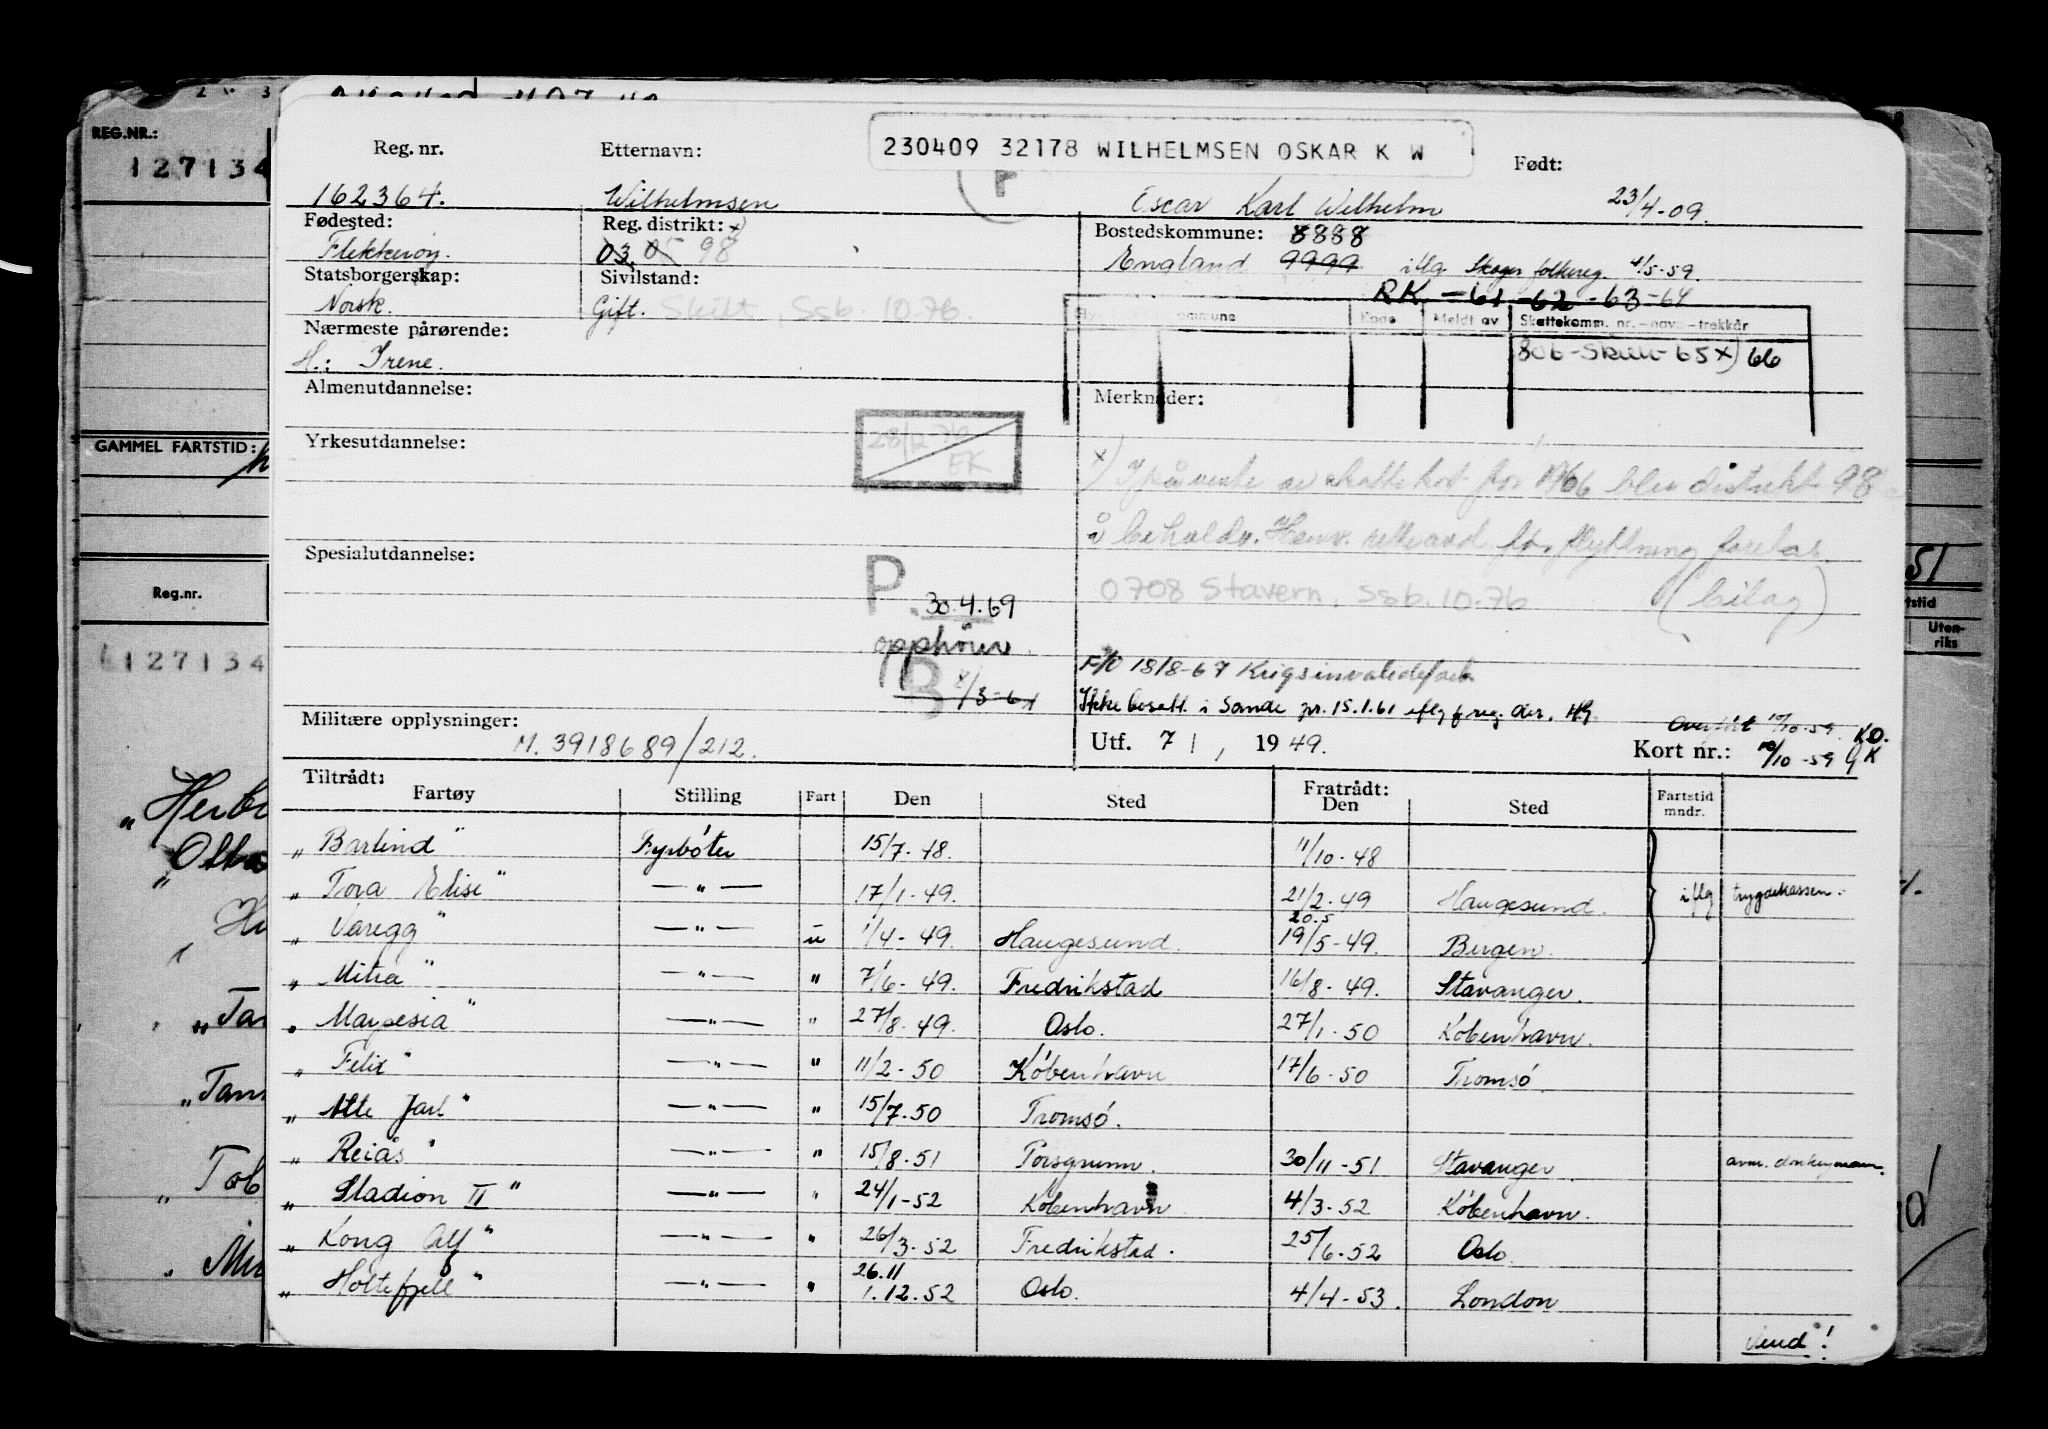 REG.NR.:
127134
GAMMEL FARTSTID:
Reg.nr.
127134
51
Uten-
riks
230409 32178 WILHELMSEN OSKAR K W
Reg. nr. Etternavn: Født:
162364. Wilhelmsen Oscar Karl Wilhelm 23/4-09.
Fødested: Reg. distrikt: x) Bostedskommune: 8888
Flekkerøy. 03 05 98 England 9999 iflg Skoger folkereg. 4/5-59.
Statsborgerskap: Sivilstand:
Norsk. Gift. Skilt, Ssb. 10.76. RK -61 -62 -63 -64
Nærmeste pårørende: Meldt av Skattekomm. nr. – navn – trekkår
H.: Irene. 65 x) 66
Almenutdannelse: Merknader:
Yrkesutdannelse: 28/12 EK
x) I påvente av skattekort for 1966 blev distrikt 98
å beholde. Henv. før flyttning foretas.
Spesialutdannelse: 0708 Stavern, Ssb. 10-76 (bilag)
P. 30.4.69
opphører
B
18/8-67 Krigsinvalide
Ikke bosatt i Sande pr. 15.1.61 HG
Overført 10/10-59. KO.
Militære opplysninger: M. 3918689/212. Utf. 7/1, 1949. Kort nr.: 10/10-59 GK
Tiltrådt: Fratrådt:
Fartøy Stilling Fart Den Sted Den Sted Fartstid mndr.
„ Barlind" Fyrbøter 15/7-48. 11/10-48
„ Tora Elise" —"— 17/1-49. 21/2-49 Haugesund. iflg trygdekassen.
„ Varegg" —"— u 1/4-49. Haugesund. 20.5 19/5-49. Bergen.
„ Mitra" —"— " 7/6-49. Fredrikstad 16/8-49. Stavanger.
„ Marpesia" —"— " 27/8-49. Oslo. 27/1-50 København.
„ Felix" —"— " 11/2-50 København 17/6-50 Tromsø.
„ Atle Jarl" —"— " 15/7-50 Tromsø.
„ Reiås" —"— " 15/8-51 Porsgrunn. 30/11-51 Stavanger avm. donkeyman.
„ Stadion II" —"— " 24/1-52 København 4/3-52 København.
„ Kong Alf" —"— " 26/3-52 Fredrikstad. 25/6-52 Oslo.
„ Holtefjell" —"— " 26.11 1.12.52 Oslo. 4/4-53. London
Vend!